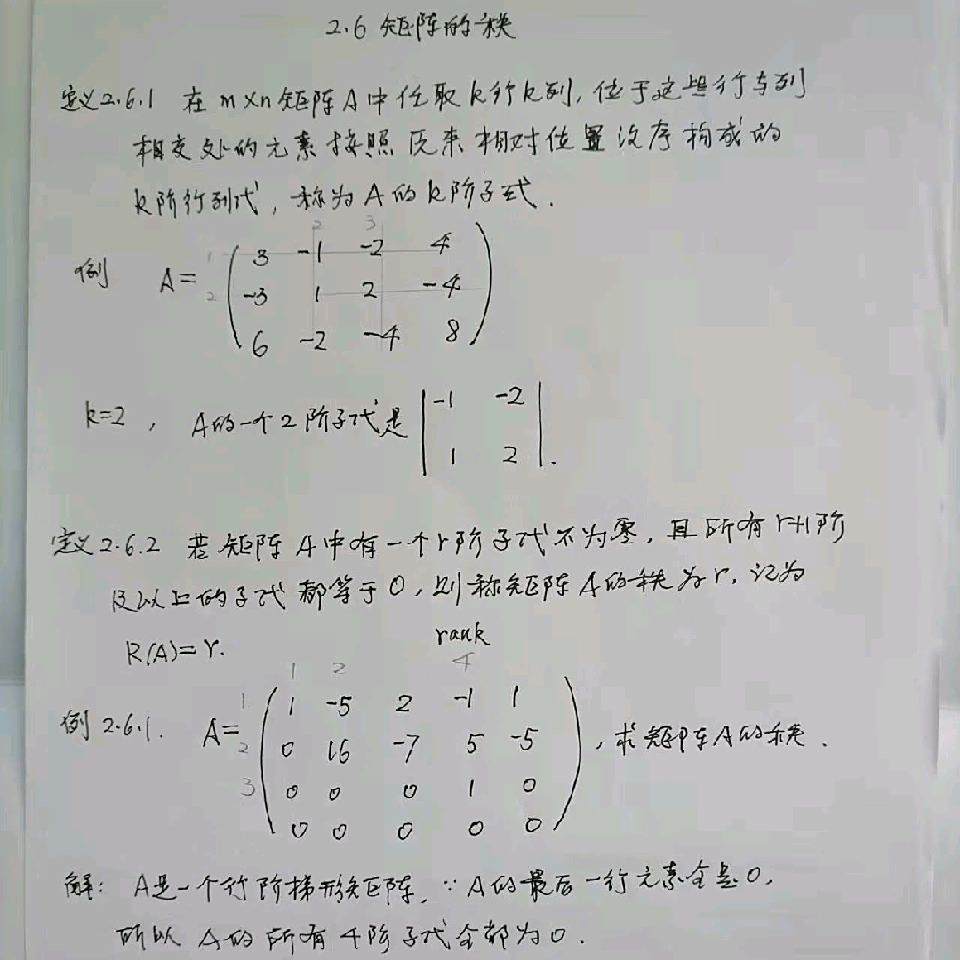 2.6 矩阵的秩
定义2.6.1 在 m×n 矩阵 A 中任取 k行k列, 位于这些行与列
相交处的元素按照原来相对位置次序构成的
k阶行列式, 称为 A 的 k阶子式.
2 3
例 A= 1 ( 3 -1 -2 4
2 -3 1 2 -4
6 -2 -4 8 )
k=2, A的一个2阶子式是 | -1 -2
1 2 |.
定义2.6.2 若矩阵 A 中有一个r阶子式不为零, 且所有 r+1阶
及以上的子式都等于0, 则称矩阵 A的秩为r. 记为
R(A)=r. rank
1 2 4
1 ( 1 -5 2 -1 1
例2.6.1. A= 2 0 16 -7 5 -5 ) , 求矩阵A的秩.
3 0 0 0 1 0
0 0 0 0 0
解: A是一个行阶梯形矩阵, ∵ A的最后一行元素全是0,
所以 A的所有4阶子式全部为0.